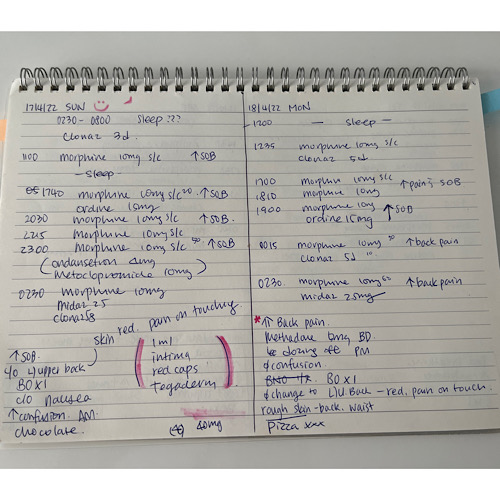 17/4/22 SUN
0230 - 0800 Sleep ???
Clonaz 3d.
1100 morphine 10mg s/c ↑SOB
- Sleep -
1740 morphine 10mg s/c ↑SOB
ordine 15mg
2030 morphine 10mg s/c ↑SOB.
2215 morphine 10mg s/c
2300 morphine 10mg s/c ↑SOB
(ondansetron 4mg
metoclopromide 10mg)
0230 morphine 10mg
midaz 2.5
clonaz
skin red. pain on touching
↑SOB.
c/o upper back
BO x 1
c/o nausea
↑confusion AM.
chocolate.
(1ml
intima
red caps
tegaderm)
40mg
18/4/22 MON
1200 — Sleep —
1235 morphine 10mg s/c
clonaz 5d
1700 morphine 10mg s/c
1810 morphine 10mg ↑pain & SOB
1900 morphine 10mg
ordine 15mg ↑SOB
0015 morphine 10mg ↑back pain
clonaz 5d
0230. morphine 10mg ↑back pain
midaz 2.5mg
* ↑↑ Back pain.
Methadone 5mg BD.
dozing PM
confusion.
BO x 1
change to L)U.Back - red, pain on touch.
rough skin - back. waist
Pizza xxx